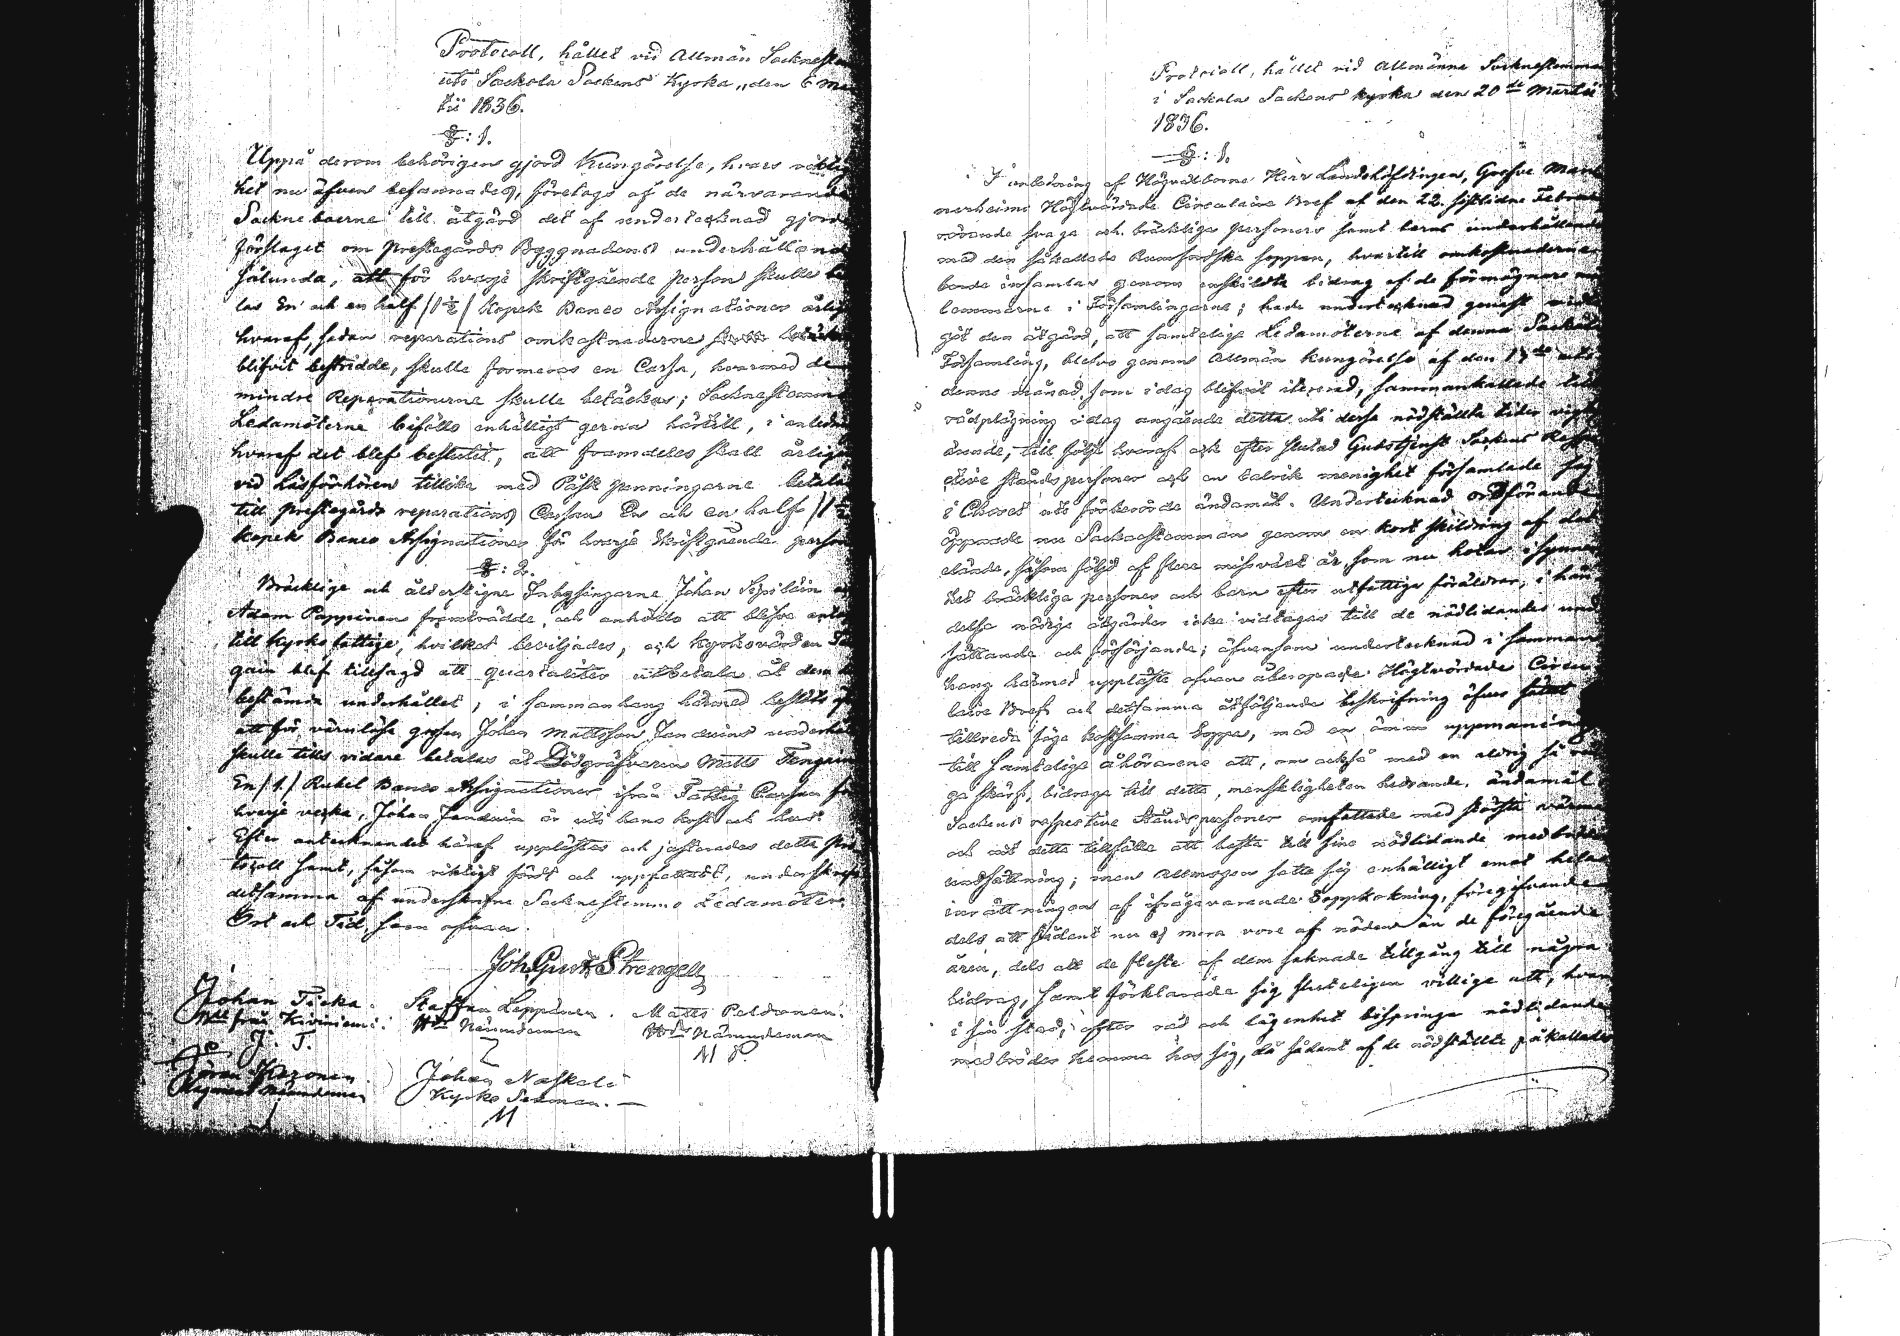 Protocoll, hållet vid Allmän Sockneste
uti Sackola Sockens Kyrka, den 6 Ma
tii 1836.
§: 1.
Uppå derom behörigen gjord Kungörelse, hvars riktig
het nu äfven besannades, företogs af de närvarande
Sockneboerne till åtgärd det af undertecknad gjord
förslaget om prestegårds Byggnadens underhålland
sålunda, att för hvarje skriftgående person skulle be
las En och en half /1½/ Kopek Banco Assignationer årlig
hvaraf, sedan reparations omkostnaderne
blifvit bestridde, skulle formeras en Cassa, hvarmed de
mindre Reparationerne skulle betäckas; Socknestemm
Ledamöterne biföllo enhälligt gerna härtill, i anledn
hvaraf det blef beslutit, att framdeles skall årlige
vid Läsförhören tillika med Påsk penningarne betala
till prestegårds reparations Cassan En och en half /1½
Kopek Banco Assignationer för hvarje skriftgående person
§: 2.
Bräcklige och ålderstigne Inhysingarne Johan
Adam Pappinen framträdde, och anhöllo att blifva anta
till kyrko fattige, hvilket beviljades, och Kyrkovärden
gain blef tillsagd att quartaliter utbetala åt dem
bestämda underhållet; i sammanhang härmed beslöts
att för värnlöse gossen Johan Mattsson underhåll
skulle tills vidare betalas åt Dödgräfvaren Matts
En /1./ Rubel Banco Assignationer ifrån Fattig Cassan för
hvarje vecka, Johan är uti hans kost och hus.
Efter antecknandet häraf upplästes och justerades detta Pro
tocoll samt, såsom riktigt fördt och uppfattat, underskrefs
detsamma af underskrifne Socknestemmo Ledamöter.
Ort och Tid, som ofvan.
Joh. Gust. Strengell
Johan Täcka. Staffan Leppänen. Matts Peldonen.
från Kiviniemi. Nämndeman Nämndeman
J. T. M P.
Göran Kozonen Johan Naskali
Nämndeman Kyrko Sexman.
M
Protocoll, hållet vid Allmänna Socknestemman
i Sackola Sockens kyrka den 20de Martii
1836.
§: 1.
I anledning af Högvälborne Herr Landshöfdingen, Grefve Mann
nerheims Högtvärdade Circulaire Bref af den 22 sistlidne Februa
rörande svaga och bräckliga personers samt barns underhållande
med den såkallade Rumfordska soppan, hvartill omkostnaderne
borde insamlas genom enskildte bidrag af de förmögnare med
lemmarne i Församlingarne; hade undertecknad genast vid
git den åtgärd, att samtelige Ledamöterne af denna Sackola
Församling, blefvo genom Allmän kungörelse af den 13de uti
denna månad, som i dag blifvit itererad, sammankallade till
rådplägning i dag angående detta uti dessa nödställta tider vigt
ärende; till följe hvaraf och efter slutad Gudstjenst Sockens Respe
ctive ståndspersoner och en talrik menighet församlade sig
i Choret uti förberörde ändamål. Undertecknad ordförande
öppnade nu Sockenstemman genom en kort skildring af det
elände, såsom följd af flere missväxt år, som nu hotar i synner
het bräckliga personer och barn efter utfattiga föräldrar, i hän
delse nödige åtgärder icke vidtages till de nödlidandes und
sättande och försörjande; äfvensom undertecknad i samman
hang härmed uppläste ofvan åberopade Högtvärdade Circu
laire Bref och detsamma åtföljande beskrifning öfver sättet
tillreda söga kostsamma Soppa, med en öm uppmaning
till samtelige åhörarene att, om också med en aldrig så rin
ga skärf, bidraga till detta, menskligheten hedrande, ändamål.
Sockens respective Ståndspersoner omfattade med största värme
och nit detta tillfälle att bistå till sine nödlidande medbröders
undsättning; men Allmogen satte sig enhälligt emot hela
inrättningen af ifrågavarande Soppkokning, föregifvande
dels att sådant nu ej mera vore af nöden än de föregående
åren, dels att de fleste af dem saknade tillgång till några
bidrag, samt förklarade sig sluteligen villige att, hvar
i sin stad, efter råd och lägenhet bispringa nödlidande
medbröder hemma hos sig, då sådant af de nödställte påkallades